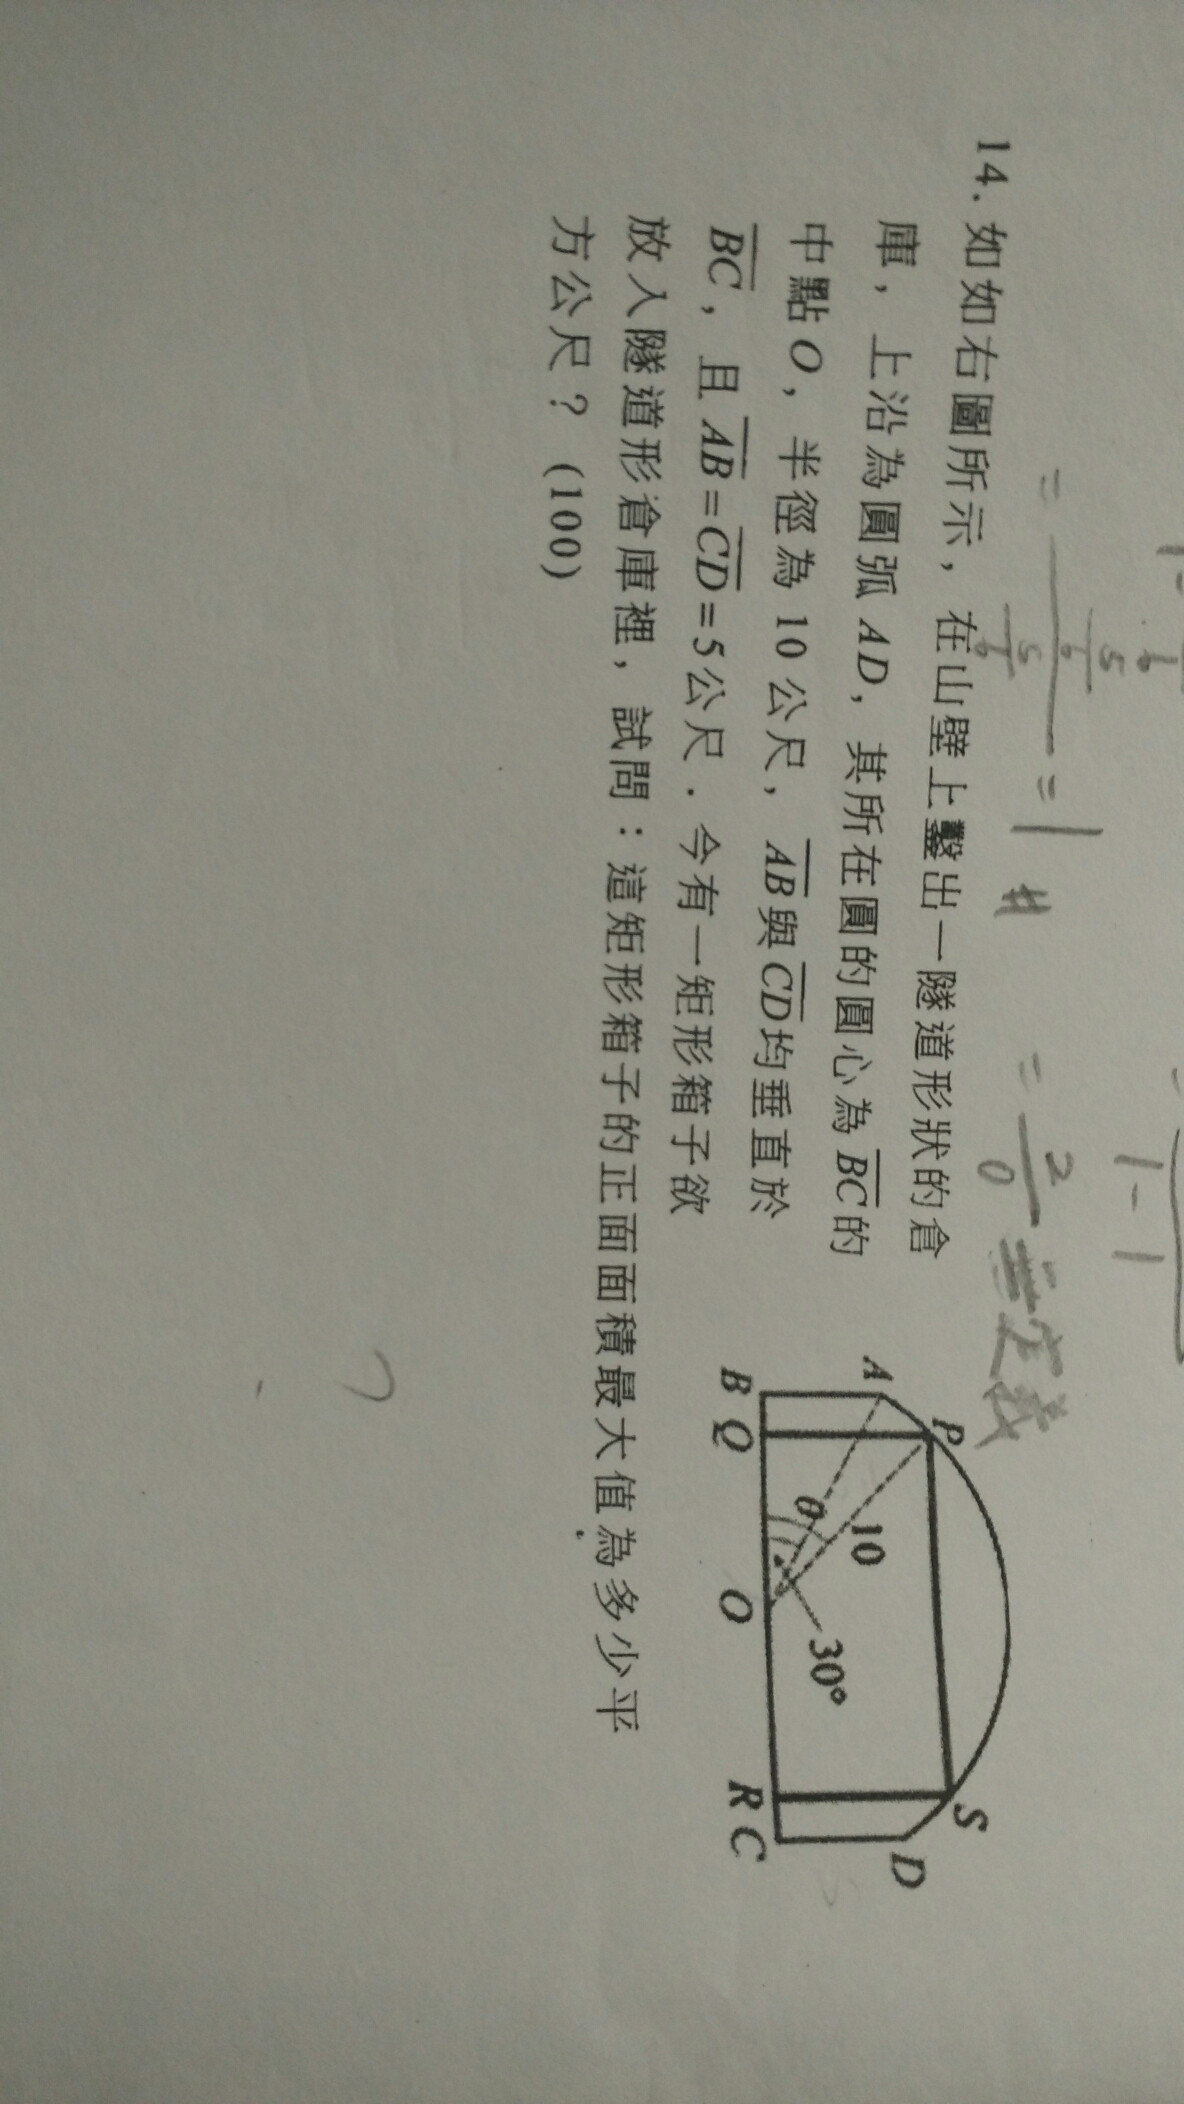 1-1
= 5/6 / 5/6 = 1 #
= 2/0 無定義
14. 如如右圖所示，在山壁上鑿出一隧道形狀的倉
庫，上沿為圓弧 AD，其所在圓的圓心為 BC 的
中點 O，半徑為 10 公尺，AB 與 CD 均垂直於
BC，且 AB=CD=5 公尺．今有一矩形箱子欲
放入隧道形倉庫裡，試問：這矩形箱子的正面面積最大值為多少平
方公尺？ (100)
A P S D
10
θ 30°
B Q O R C